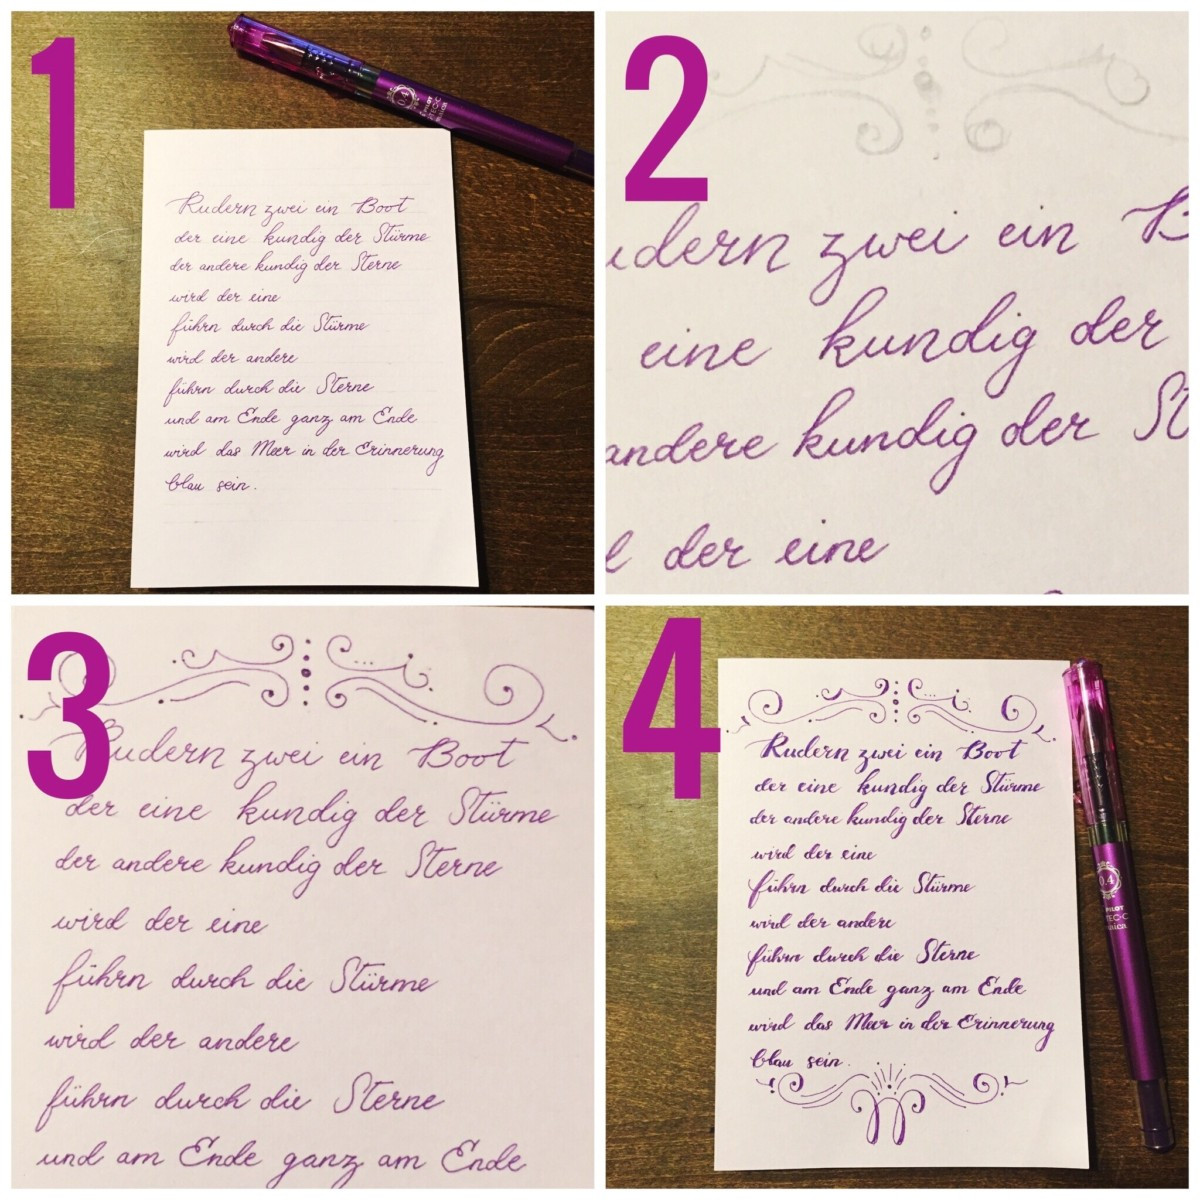 1
PILOT
0.4
Rudern zwei ein Boot
der eine kundig der Stürme
der andere kundig der Sterne
wird der eine
führn durch die Stürme
wird der andere
führn durch die Sterne
und am Ende ganz am Ende
wird das Meer in der Erinnerung
blau sein.
2
udern zwei ein B
eine kundig der
andere kundig der St
der eine
3
Rudern zwei ein Boot
der eine kundig der Stürme
der andere kundig der Sterne
wird der eine
führn durch die Stürme
wird der andere
führn durch die Sterne
und am Ende ganz am Ende
4
Rudern zwei ein Boot
der eine kundig der Stürme
der andere kundig der Sterne
wird der eine
führn durch die Stürme
wird der andere
führn durch die Sterne
und am Ende ganz am Ende
wird das Meer in der Erinnerung
blau sein.
0.4
PILOT